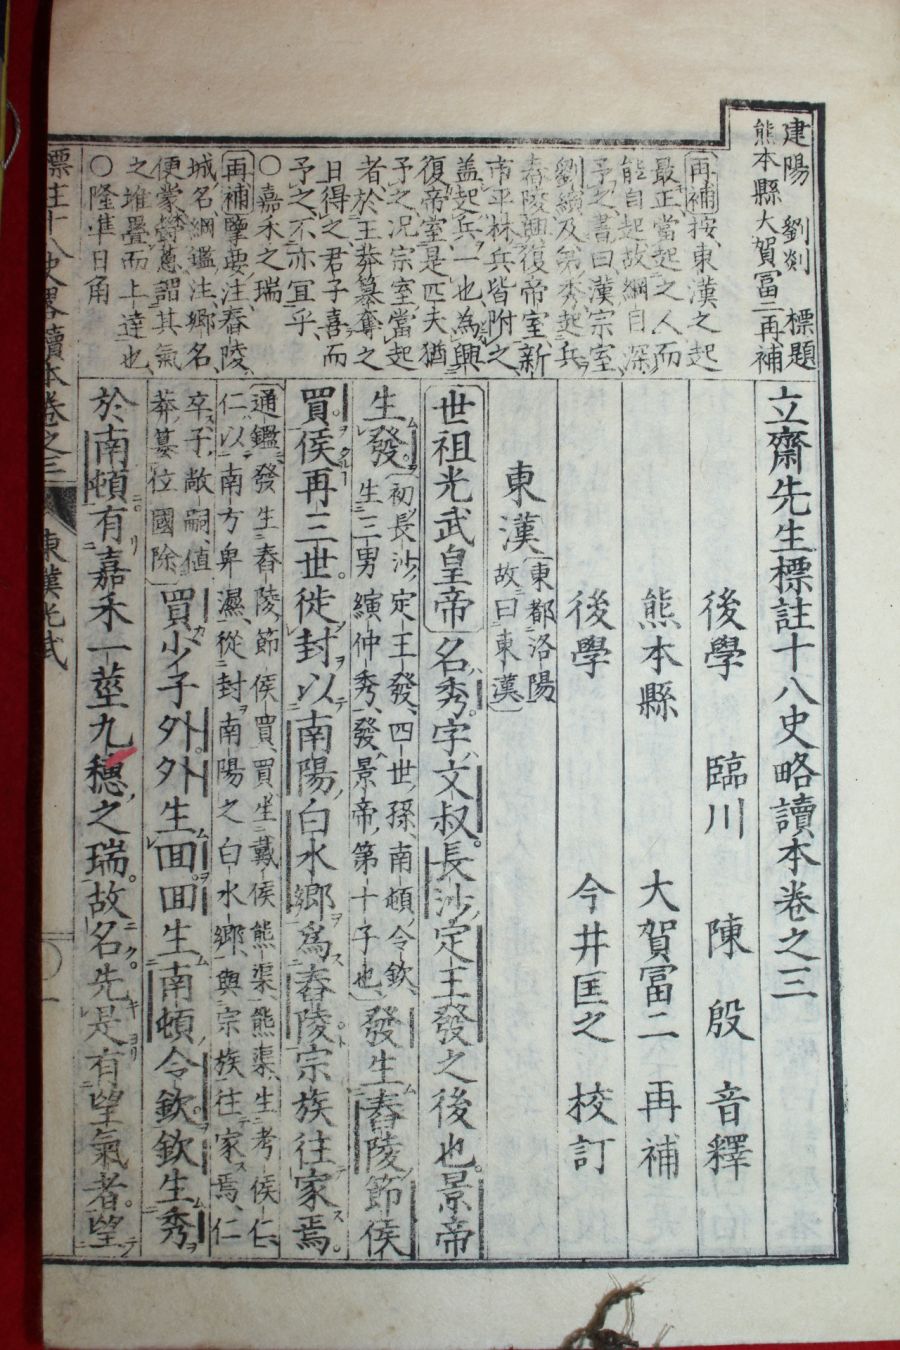 建陽 劉剡 標題
熊本縣大賀冨二再補
再補按、東漢之起
最正、當起之人而
能自起、故綱目深
予之、書曰漢宗室
劉縯及弟秀起兵
舂陵興復帝室新
市平林兵皆附之
盖起兵一也、為興
復帝室是匹夫猶
予之、況宗室當起
者於王莽簒奪之
日得之、君子喜而
予之、不亦宜乎、
○嘉禾之瑞
再補擥要注、舂陵、
城名、綱鑑注、鄉名
便蒙欝蔥謂其氣
之堆疊而上達也、
○隆準日角
立齋先生標註十八史略讀本卷之三
後學 臨川 陳殷 音釋
熊本縣 大賀冨二 再補
後學 今井匡之 校訂
東漢 東都洛陽故曰東漢
世祖光武皇帝名秀。字文叔。長沙定王發之後也。景帝
生發。初長沙定王發、四世孫、南頓令欽、生三男縯仲秀、發、景帝第十子也、發生舂陵節侯
買。侯再三世。徙封以南陽白水鄉爲舂陵宗族往家焉。
通鑑、發生舂陵節侯買、買生戴侯熊渠、熊渠、生考侯仁、
仁、以南方卑濕、徙封南陽之白水鄉、與宗族往家焉、仁
卒、子敞嗣、值莽簒位國除 買少子外。外生囬。囬生南頓令欽。欽生秀
於南頓。有嘉禾一莖九穗之瑞。故名。先是有望氣者。望
標註十八史畧讀本卷之三 東漢光武 一